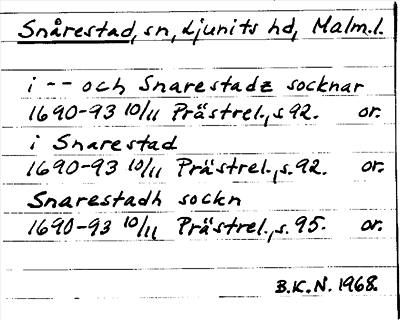 Snårestad, sn, Ljunits hd, Malm.l.
i -- och Snarestadz socknar
1690-93 10/11 Prästrel., s 92. or.
i Snarestad
1690-93 10/11 Prästrel., s. 92. or.
Snarestadh sockn
1690-93 10/11 Prästrel., s. 95. or.
B.K.N. 1968.